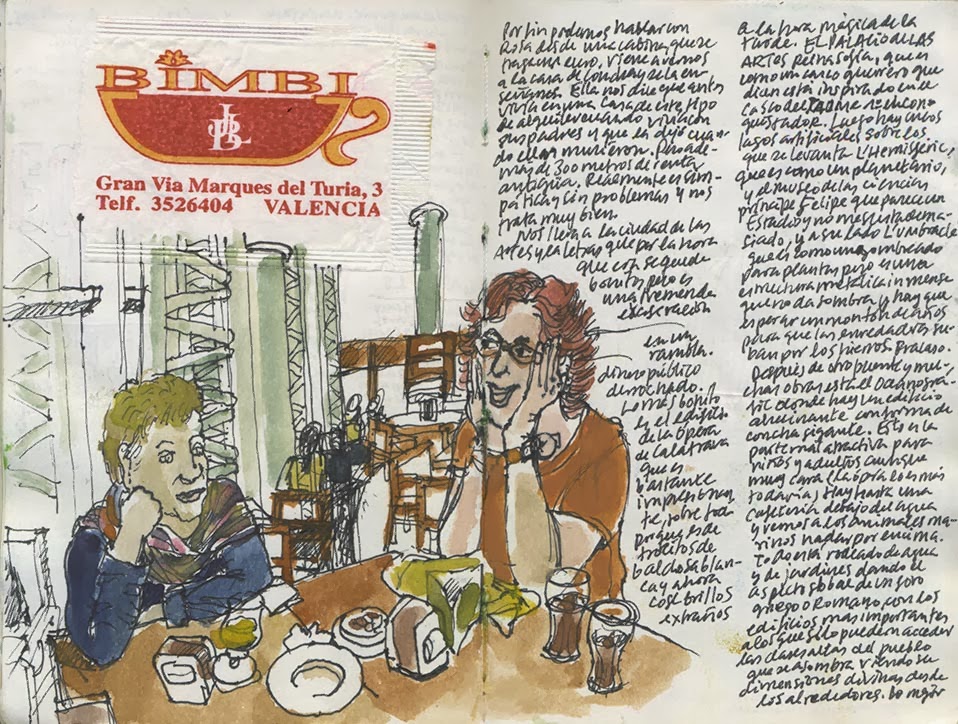 BIMBI
JLB
Gran Via Marques del Turia, 3
Telf. 3526404 VALENCIA
Por fin podemos hablar con
Rosa desde una cabina que se
traga un euro, viene a vernos
a la casa de y se la en
señamos. Ella nos dice que antes
vivía en una casa de este tipo
de alquiler cuando vivían con
sus padres y que la dejó cuan
do ellos murieron. Pero ade-
más de 300 metros de renta
antigua. Realmente es sim-
pática y sin problemas y nos
trata muy bien.
Nos lleva a la ciudad de las
Artes y las letras que por la hora
que es se quede
bonito pero es
una tremenda
excavación
en un
rambla.
dinero público
derrochado.
Lo más bonito
es el edificio
de la ópera
de Calatrava
que es
bastante
impresionan
te, sobre todo
porque es de
trocitos de
baldosa blan-
ca y ahora
coge brillos
extraños
a la hora mágica de la
tarde. EL PALACIO de LAS
ARTES Reina Sofía, que es
como un casco guerrero que
dicen está inspirado en el
casco del Jaime I el con
quistador. Luego hay unos
lagos artificiales sobre los
que se levanta L'Hemisfèric,
que es como un planetario,
y el museo de las ciencias
príncipe Felipe que parece un
Estadio y no me gusta dema-
siado, y a su lado L'umbracle
que es como un sombreado
para plantas pero es una
estructura metálica inmensa
que no da sombra y hay que
esperar un montón de años
para que las enredaderas su-
ban por los hierros. Fracaso.
Después de otro puente y mu-
chas obras está el Oceanogra-
fic donde hay un edificio
alucinante con forma de
concha gigante. Esto es la
parte más atractiva para
niños y adultos aunque
muy cara (la ópera lo es más
todavía) Hay hasta una
cafetería debajo del agua
y vemos a los animales ma-
rinos nadar por encima.
Todo está rodeado de agua
y de jardines dando el
aspecto global de un foro
griego o Romano, con los
edificios más importantes
a los que sólo pueden acceder
las clases altas del pueblo
que se asombra viendo su
dimensiones divinas desde
los alrededores. Lo mejor